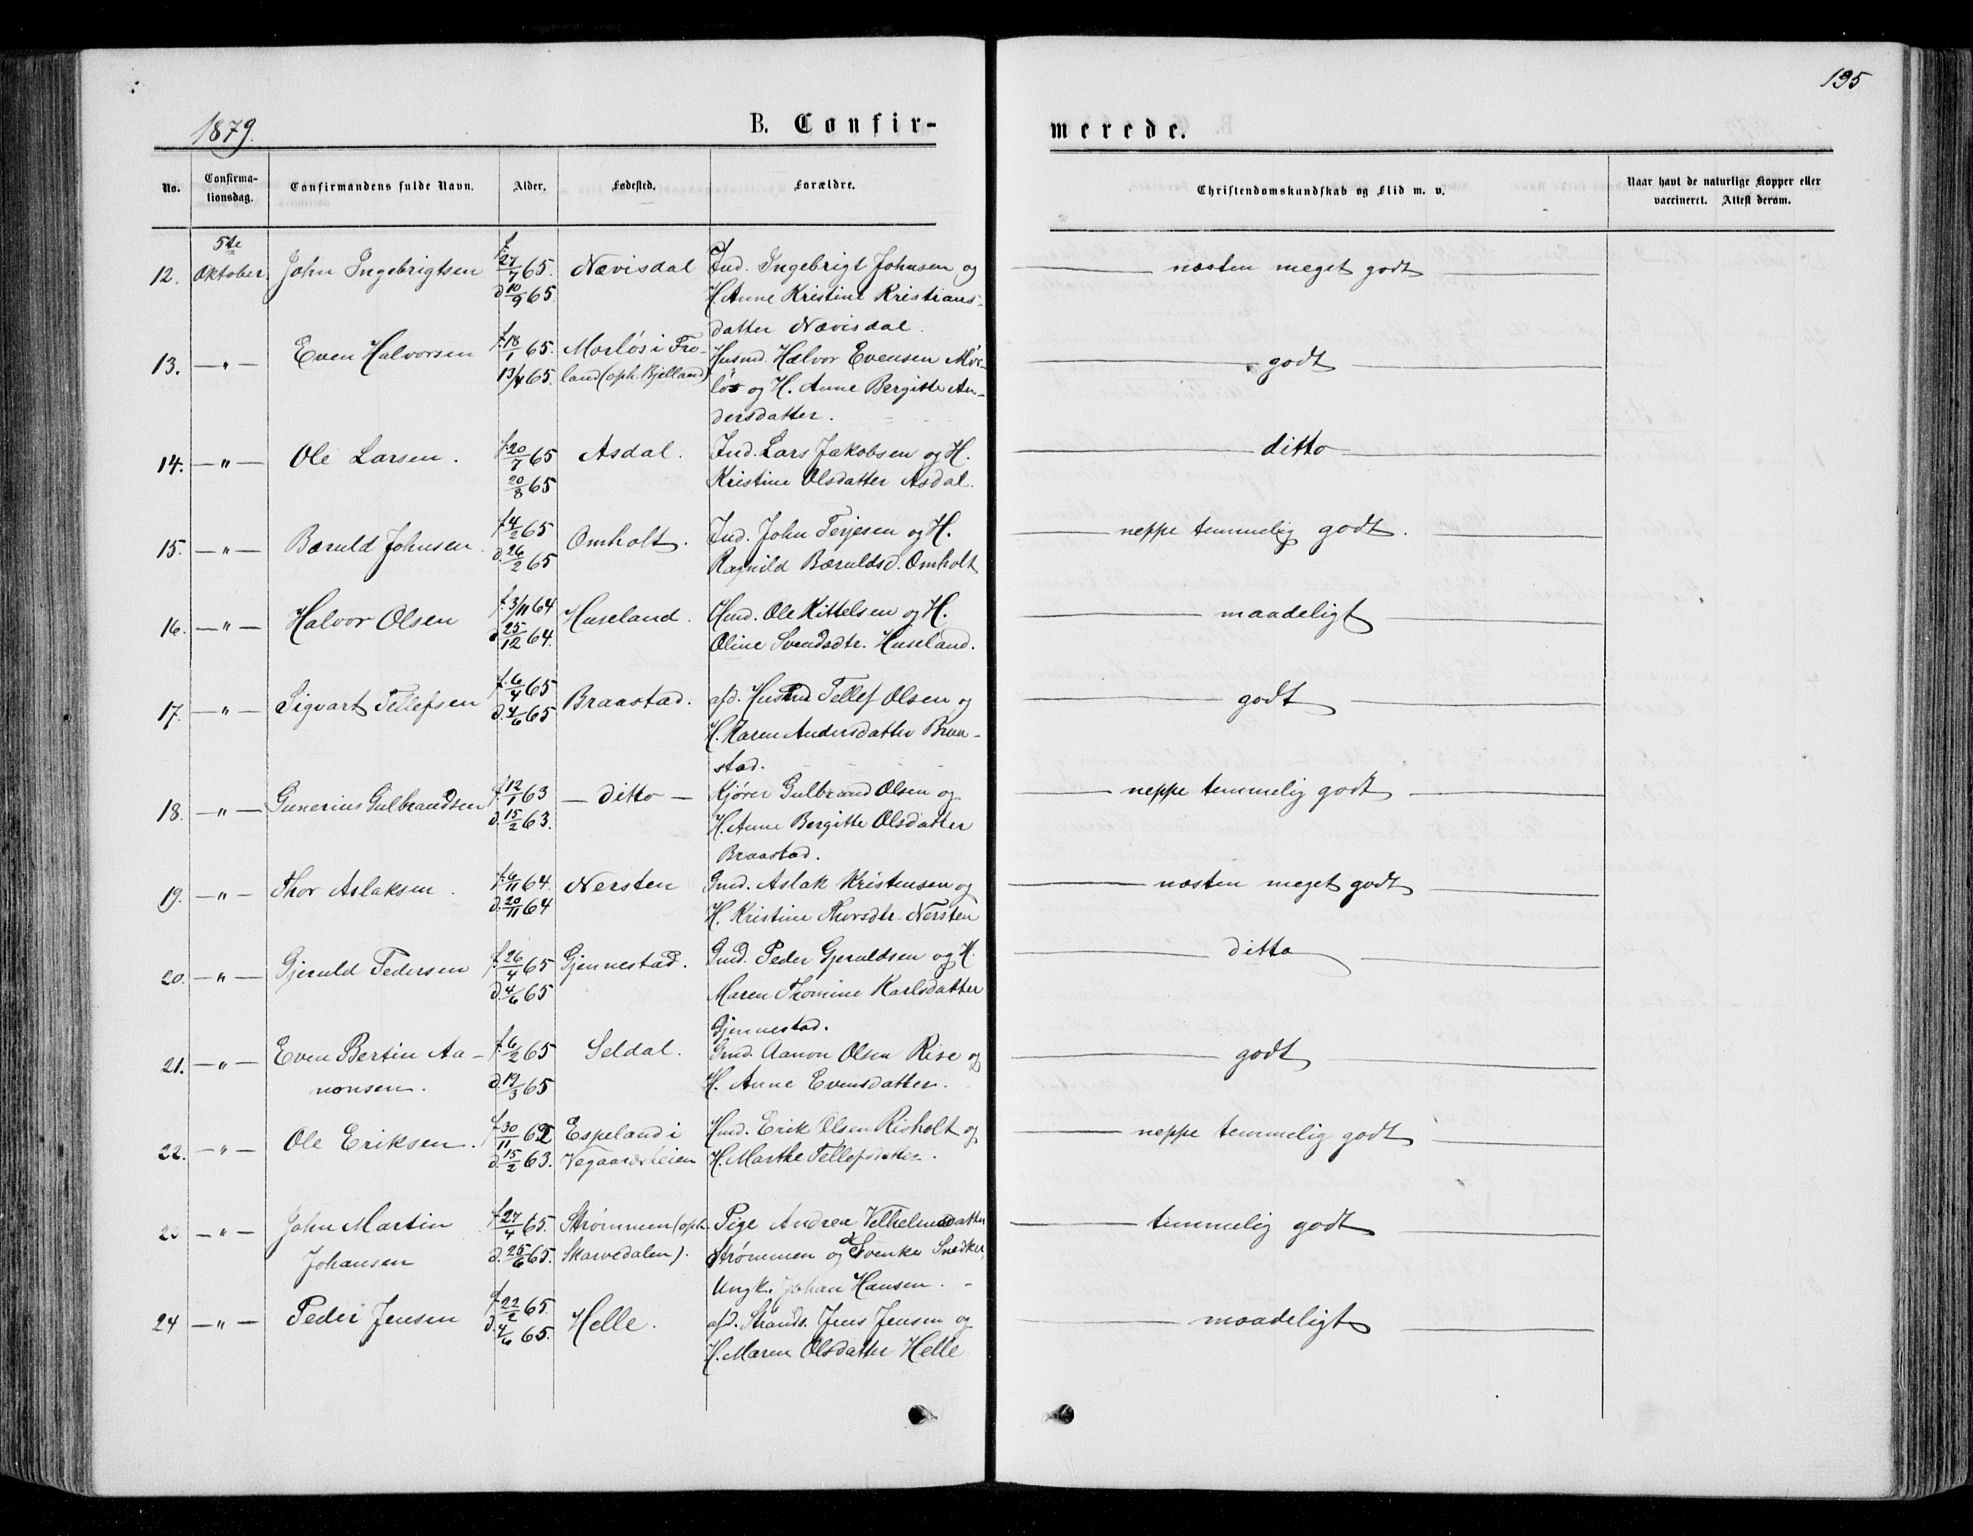 195
1879.
B. Confir-
merede.
No.
Confirma-
tionsdag.
Confirmandens fulde Navn.
Alder.
Fødested.
Forældre.
Christendomskundskab og Flid m. v.
Naar havt de naturlige Kopper eller
vaccineret. Attest derom.
5te
12. Oktober John Ingebrigtsen f. 27/7 65. Nævisdal Ind. Ingebrigt Johnsen og — næsten meget godt —
d 10/9 65. H. Anne Kristine Kristians-
datter Nævisdal.
13. — " — Even Halvorsen f. 18/1 65. Morløs i Fro- Husmd. Halvor Evensen Mor- — godt —
13/4 65. land (oph. Bjelland) løs og H. Anne Bergitte An-
dersdatter.
14. — " — Ole Larsen. f. 20/7 65 Asdal. Ind. Lars Jakobsen og H. — ditto —
20/8 65 Kristine Olsdatter Asdal.
15. — " — Bæruld Johnsen. f. 4/2 65 Omholt. Ind. John Terjesen og H. — neppe temmelig godt. —
d. 26/2 65 Ragnild Bæruldsd. Omholt
16. — " — Halvor Olsen f. 3/11 64 Huseland. Hmd. Ole Kittelsen og H. — maadeligt —
d 25/12 64. Oline Svendsdtr. Huseland.
17. — " — Sigvart Tellefsen f. 6/4 65 Braastad. afd. Husmd Tellef Olsen og — godt —
d. 4/6 65 H. Karen Andersdatter Braa-
stad.
18. — " — Gunerius Gulbrandsen f. 12/1 63 — ditto — Kjører Gulbrand Olsen og — neppe temmelig godt —
d. 15/2 63. H. Anne Bergitte Olsdatter
Braastad.
19. — " — Thor Aslaksen. f. 6/11 64. Nersten Gmd. Aslak Kristensen og — næsten meget godt —
d. 20/11 64 H. Kristine Thorsdtr. Nersten
20. — " — Gjeruld Pedersen f. 26/4 65 Gjennestad. Gmd. Peder Gjeruldsen og H. — ditto —
d. 4/6 65 Maren Thomine Karlsdatter
Gjennestad.
21. — " — Even Bertin Aa- f. 6/2 65 Seldal. Gmd. Aanon Olsen Rise og — godt —
nonsen. d. 19/3 65 H. Anne Evensdatter.
22. — " — Ole Eriksen. f. 30/11 62 Espeland i Hmd. Erik Olsen Risholt og — neppe temmelig godt —
d. 15/2 63. Vegaarsheien H. Marthe Tellefsdatter.
23 — " — John Martin f. 27/4 65. Strømmen (oph. Pige Andrea Velhelmsdatter — temmelig godt —
Johansen d. 25/6 65. Skarvedalen). Strømmen og Svenske Snedker,
Ungk. Johan Hansen.
24 — " — Peder Jensen f. 22/2 65. Helle. afd. Strands. Jens Jensen og — maadeligt —
d. 4/6 65. H. Maren Olsdatter Helle